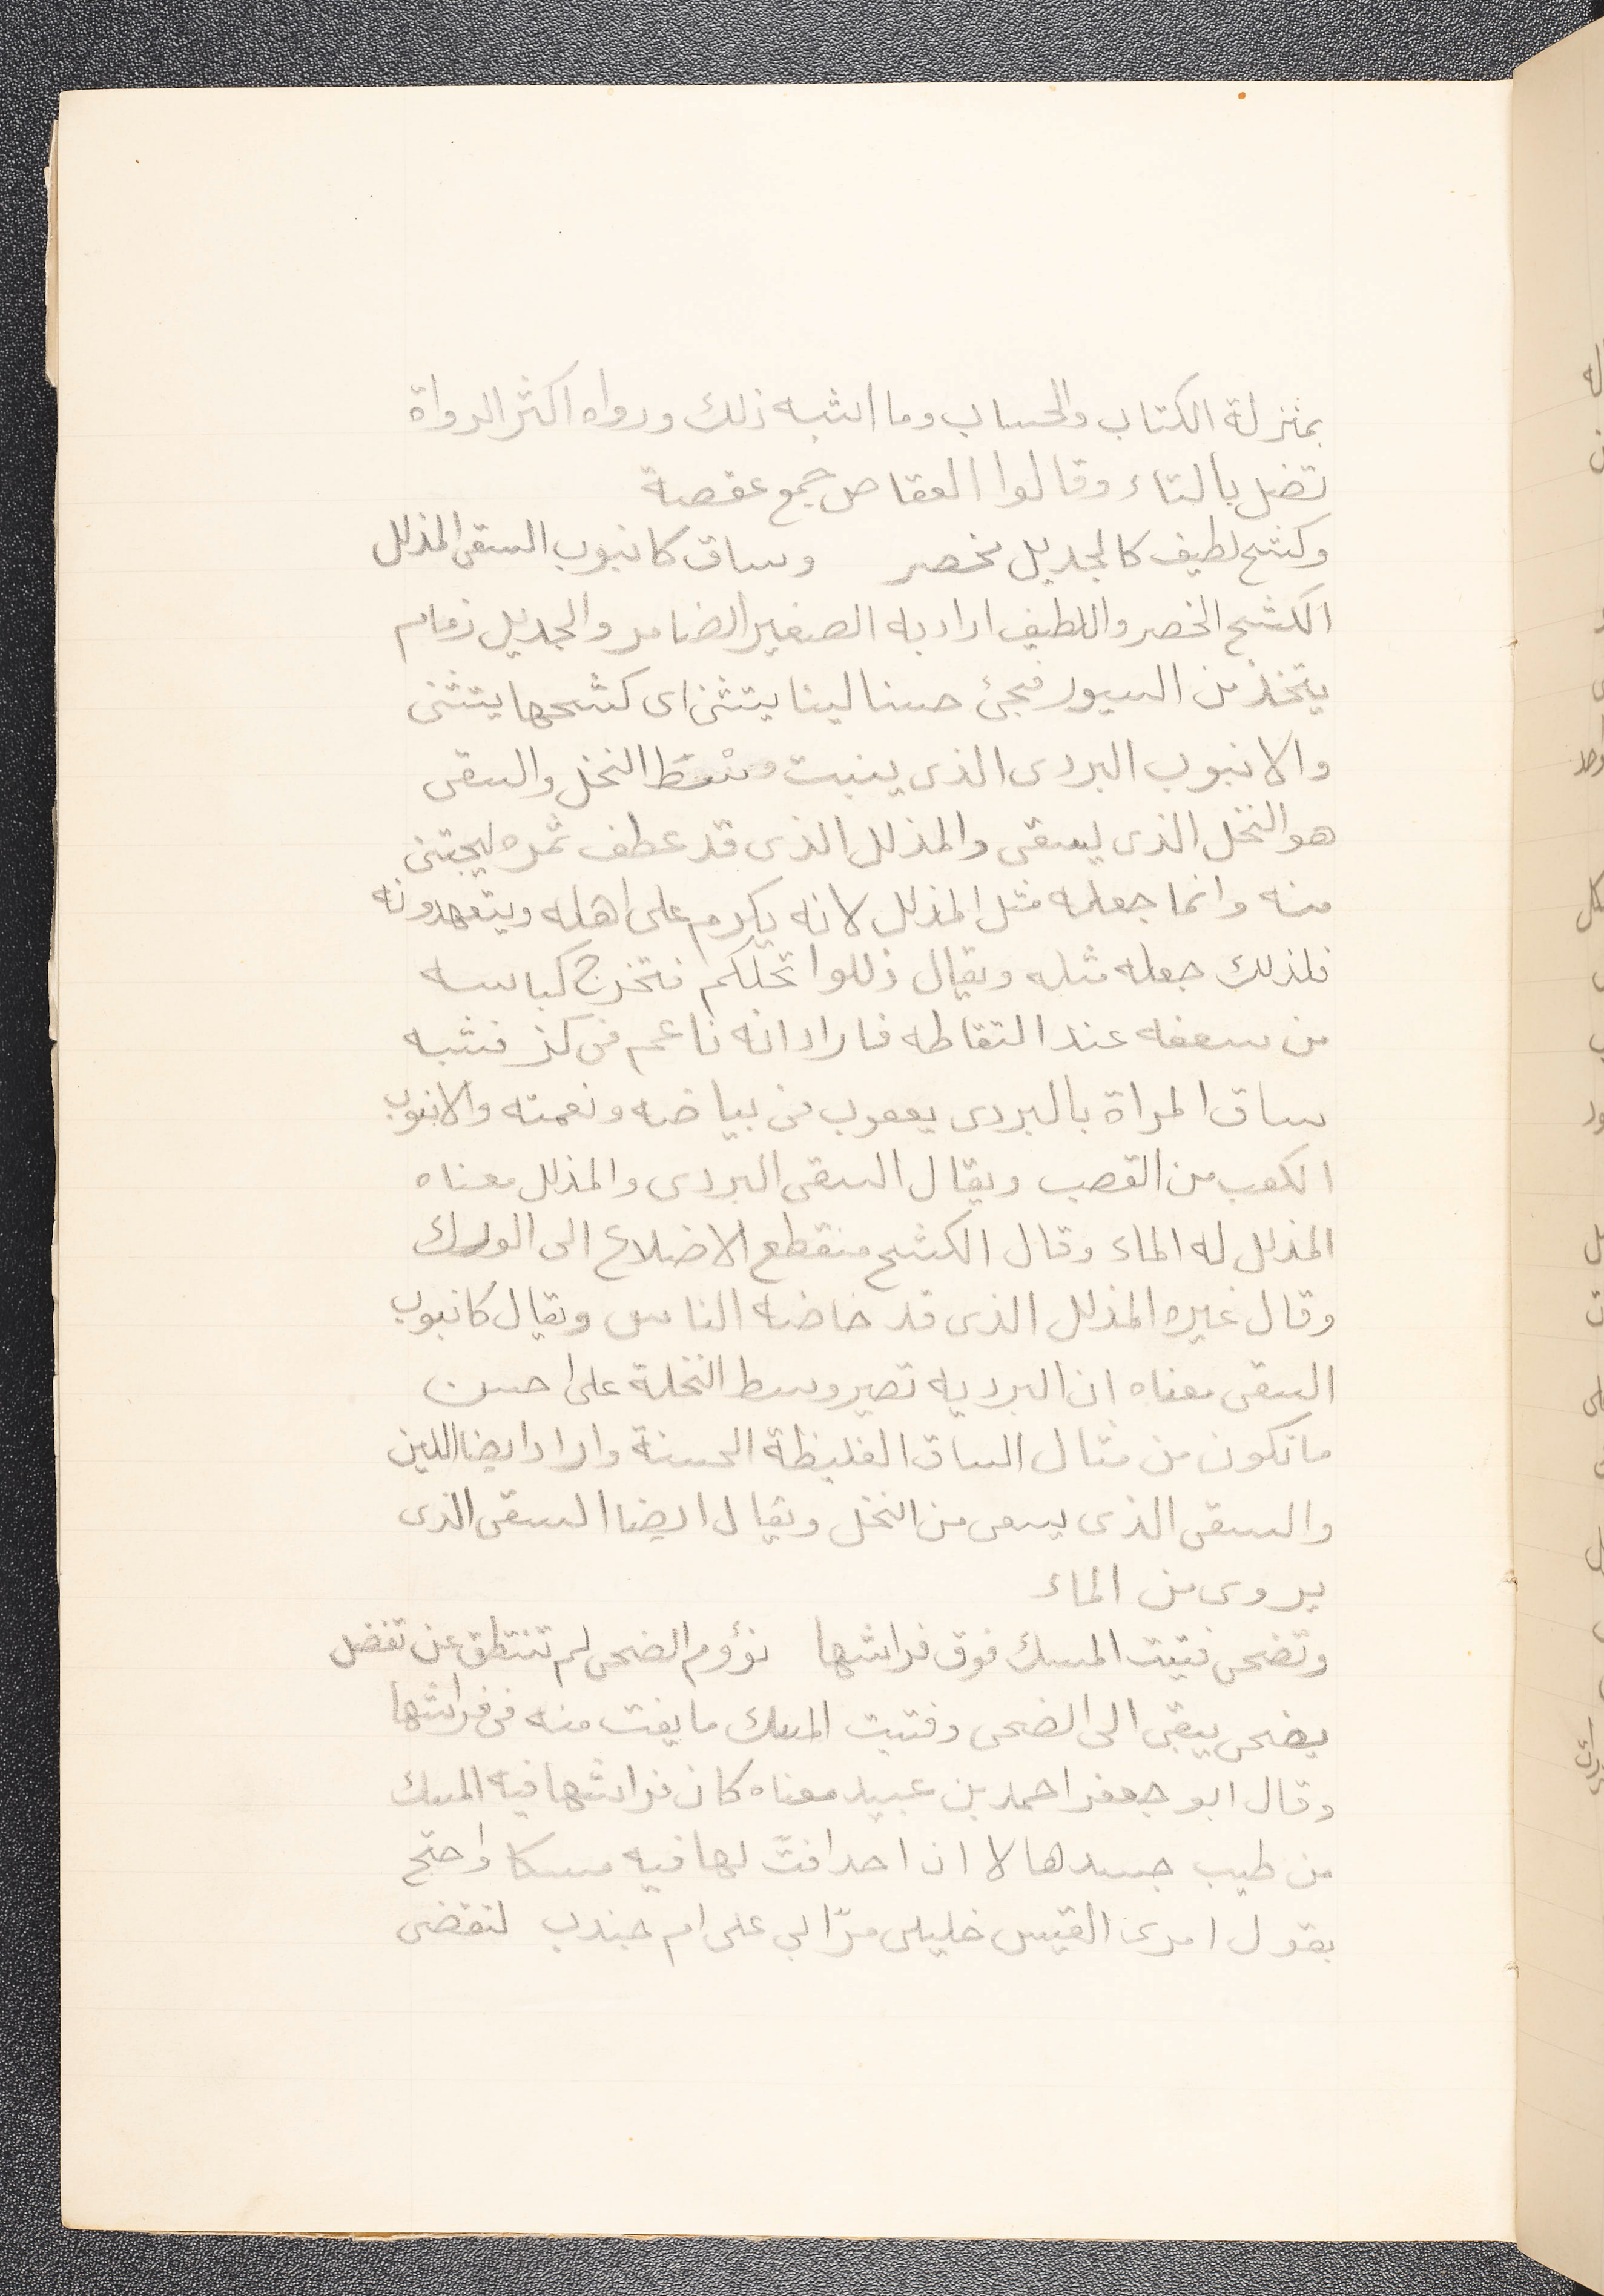 بمنزلة الكتاب والحساب وما اشبه ذلك ورواه اكثر الرواة
تضل بالتاء وقالوا العقاص جمع عقصة
وكشح لطيف كالجديل مخصر وساق كانبوب السقى المذلل
الكشح الخصر واللطيف اراد به الصغير الضامر والجديل زمام
يتخذ من السيور فيجئ حسنا لينا يتثنى اى كشحها يتثنى
والانبوب البردى الذى ينبت وسْط النخل والسقى
هو النخل الذى يسقى والمذلل الذى قد عطف ثمره ليجتنى
منه وانما جعله مثل المذلل لانه يكرم على اهله ويتعهدونه
فلذلك جعله مثله ويقال ذللوا نخلكم فتخرج كباسه
من سعفه عند التقاطه فاراد انه ناعم فى كذ فشبه
ساق المراة بالبردى يعقوب من بياضه ونعمته والانبوب
الكعب من القصب ويقال السقى البردى والمذلل معناه
المذلل له الماء وقال الكشح منقطع الاضلاع الى الورك
وقال غيره المذلل الذى قد خاضه الناس ويقال كانبوب
السقى معناه ان البرديه تصير وسط النخلة على احسن
ما تكون من مثال الساق الغليظة الحسنة واراد ايضا اللين
والسقى الذى يسعى من النخل ويقال ايضا السقى الذى
يروى من الماء
وتضحى فتيت المسك فوق فراشها نؤوم الضحى لم تنتطق عن تفضل
يضحى يبقى الى الضحى وفتيت المسك ما يفت منه فى فراشها
وقال ابو جعفر احمد بن عبيد معناه كان فراشها فيه المسك
من طيب جسدها لا ان احدا فتّ لها فيه مسكا واحتج
بقول امرى القيس خليلى مرّا بى على ام جندب لنقضى